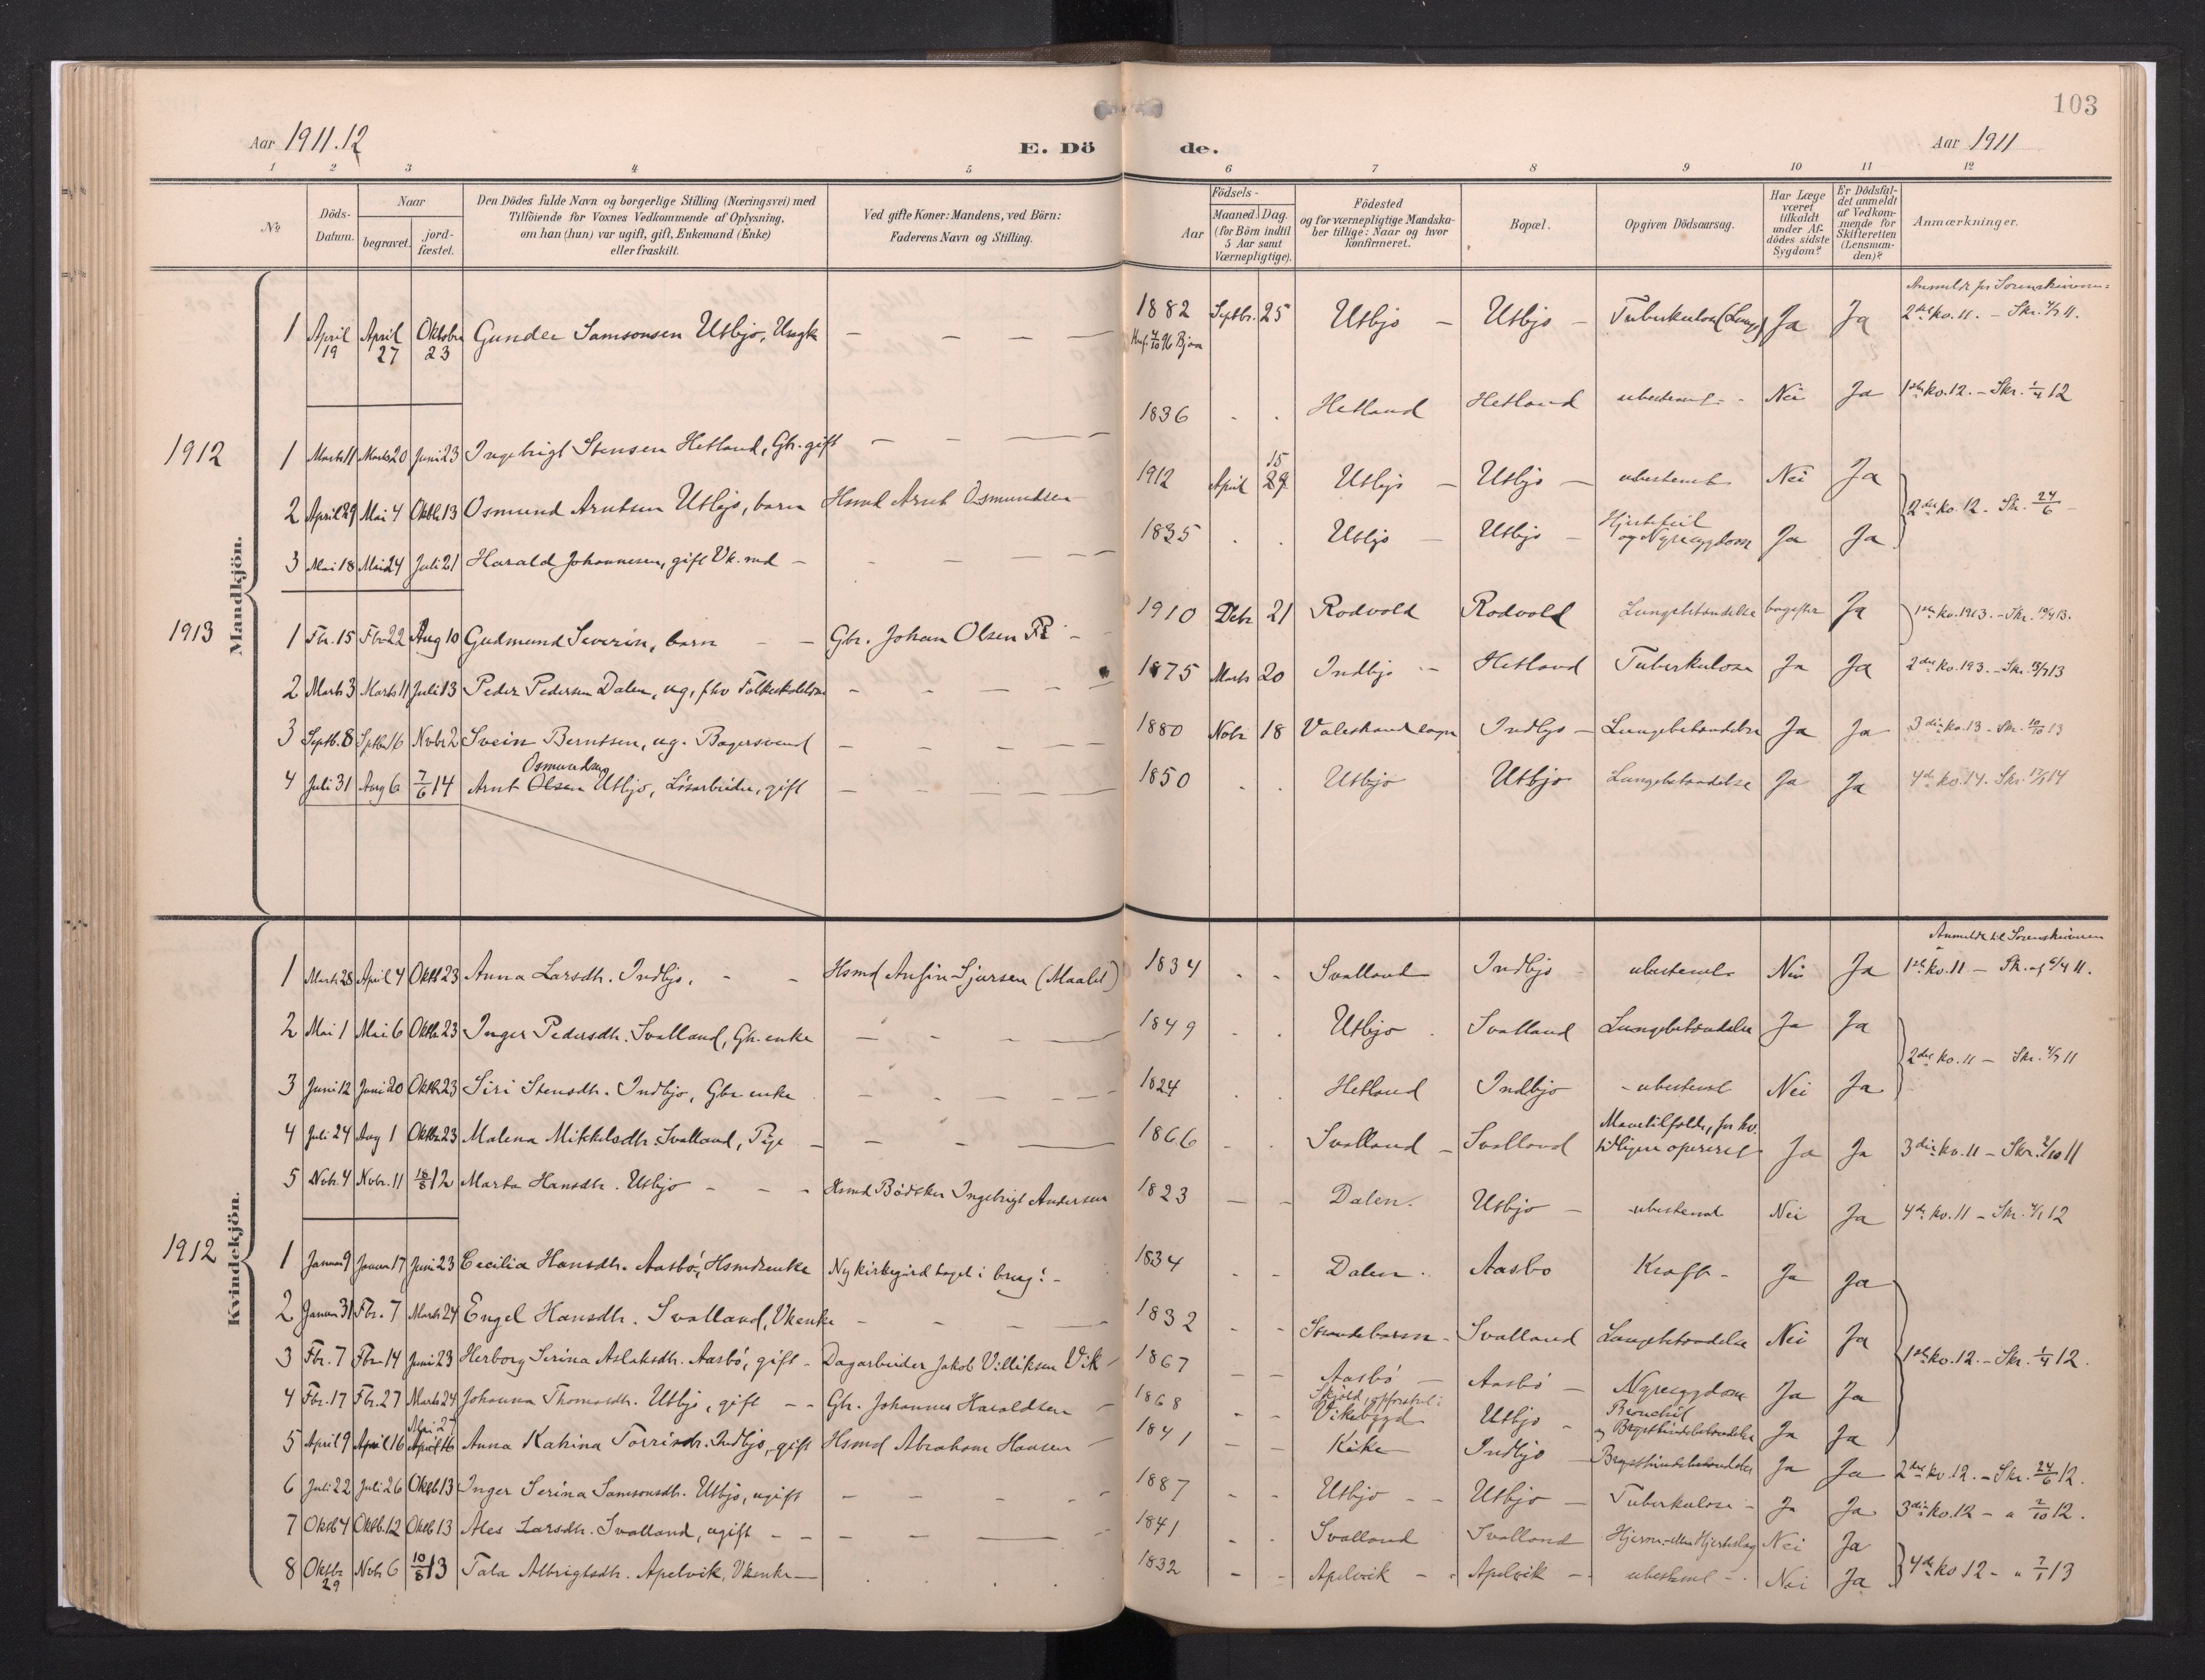 103
Aar 1911.12 E. Dö de. Aar 1911
1 2 3 4 5 6 7 8 9 10 11 12
№ Döds-Datum. Naar begravet. jord-fæstet. Den Dödes fulde Navn og borgerlige Stilling (Næringsvei) med Tilföiende for Voxnes Vedkommende af Oplysning, om han (hun) var ugift, gift, Enkemand (Enke) eller fraskilt. Ved gifte Koner: Mandens, ved Börn: Faderens Navn og Stilling. Födsels- Aar Maaned. Dag. (for Börn indtil 5 Aar samt Værnepligtige). Födested og for værnepligtige Mandskaber tillige: Naar og hvor konfirmeret. Bopæl. Opgiven Dödsaarsag. Har Læge været tilkaldt under Afdödes sidste Sygdom? Er Dödsfaldet anmeldt af Vedkommende for Skifteretten (Lensmanden)? Anmærkninger.
Mandkjön.
1 April 19 April 27 Oktobr 23 Gunder Samsonsen Utbjo, Ungk — 1882 Septbr. 25 Utbjo — Utbjo — Tuberkulose (Lunge) Ja Ja 2det ko. 11. — Skr. 4/7 11.
1912 1 Marts 11 Marts 20 Juni 23 Ingebrigt Stensen Hetland, Gbr. gift — 1836 Hetland Hetland ubestemt Nei Ja 1ste ko. 12. — Skr. 1/4 12
2 April 29 Mai 4 Oktb 13 Osmund Arntsen Utbjo, barn Hsmd Arnt Osmundsen 1912 April 15 29 Utbjo — Utbjo — ubestemt Nei Ja
2det ko. 12 - Skr. 24/6
3 Mai 18 Mai 24 Juli 21 Harald Johannesen, gift Vk. md — 1835 Utbjo — Utbjo — Hjertefeil og Nyresygdom Ja Ja
1913 1 Fbr. 15 Fbr 22 Aug 10 Gudmund Severin, barn — Gbr. Johan Olsen 1910 Debr 21 Rodvold Rodvold Lungebetændelse bagefter Ja 1ste ko. 1913. — Skr. 19/4 13.
2 Marts 3 Marts 11 Juli 13 Peder Pedersen Dalen, ug, fhv Folkeskolelærer — 1875 Marts 20 Indbjo — Hetland Tuberkulose Ja Ja 2det ko. 193. — Skr. 13/7 13
3 Septb. 8 Sptbr 16 Nvbr 2 Svein Berntsen, ug. Bagersvend — 1880 Nobr 18 Valestrand sogn Indbjo — Lungebetændelse Ja Ja 3die ko. 13 - Skr. 10/10 13
Osmundsen
4 Juli 31 Aug 6 7/6 14 Arnt Olsen Utbjo, Lösarbeider, gift — 1850 Utbjo Utbjo Lungebetændelse Ja Ja 4de ko. 14. Skr. 14
Kvindekjön.
Anmeldt til Sorenskriveren
1 Marts 28 April 4 Oktb 23 Anna Larsdtr. Indbjo, — Hsmd Anfin Sjursen (Maalet) 1834 Svalland Indbjo ubestemt Nei Ja 1ste ko. 11 — Skr. af 6/4 11.
2 Mai 1 Mai 6 Oktbr 23 Inger Pedersdtr. Svalland, Gbr. enke — 1849 Utbjo Svalland Lungebetændelse Ja Ja
2det ko. 11 — Skr. 4/7 11
3 Juni 12 Juni 20 Oktbr 23 Siri Stensdtr. Indbjo, Gbr enke — 1824 Hetland Indbjo ubestemt Nei Ja
4 Juli 24 Aug 1 Oktbr 23 Malena Mikkelsdtr. Svalland, Pige — 1866 Svalland — Svalland Mavetilfælde, for hv. tidligere opereret Ja Ja 3die kv. 11 — Skr. 2/10 11
5 Nobr. 4 Nobr. 11 18/8 12 Marta Hansdtr. Utbjo — Hsmd Bödtker Ingebrigt Andersen 1823 Dalen. Utbjo — ubestemt Nei Ja 4de kv. 11 — Skr. 4/1 12
1912 1 Januar 9 Januar 17 Juni 23 Cecilia Hansdtr. Aasbö, Hsmdsenke Ny kirkegård taget i brug! — 1834 Dalen. Aasbo Kræft — Ja Ja
2 Januar 31 Fbr. 7 Marts 24 Engel Hansdtr. Svalland, Vkenke — 1832 Strandebarm — Svalland Lungebetændelse Nei Ja
1ste ko. 12. — Skr. 1/4 12.
3 Fbr. 7 Fbr 14 Juni 23 Herborg Serina Aslaksdtr. Aasbö, gift — Dagarbeider Jakob Villiksen Vik 1867 Aasbö — Aasbö — Nyresygdom Ja Ja
4 Fbr. 17 Fbr. 27 Marts 24 Johanna Thomasdtr. Utbjo, gift — Gbr. Johannes Haraldsen 1868 Skjold, opfostret i Vikebygd Utbjo — Bronchit og Brysthindebetændelse Ja Ja
5 April 9 April 16 April 16 Anna Katrina Torrisdtr. Indbjo, gift Hsmd Abraham Hansen 1841 Kike Indbjo — Brysthindebetændelse Ja Ja 2det kv. 12. — Skr. 24/6 12.
6 Juli 22 Juli 26 Oktb 13 Inger Serina Samsonsdtr. Utbjo, ugift — 1887 Utbjo — Utbjo — Tuberkulose — Ja Ja 3die ko. 12 — " 2/10 12.
7 Oktb 4 Oktb. 12 Oktb 13 Ales Larsdtr. Svalland, ugift — 1841 Svalland Svalland Hjerne- eller Hjerteslag Nei Ja
4de ko 12 — " 7/1 13
8 Oktbr 29 Nobr 6 10/8 13 Tala Albrigtsdtr. Apelvik, Vkenke — 1832 Apelvik — Apelvik — ubestemt — Nei Ja